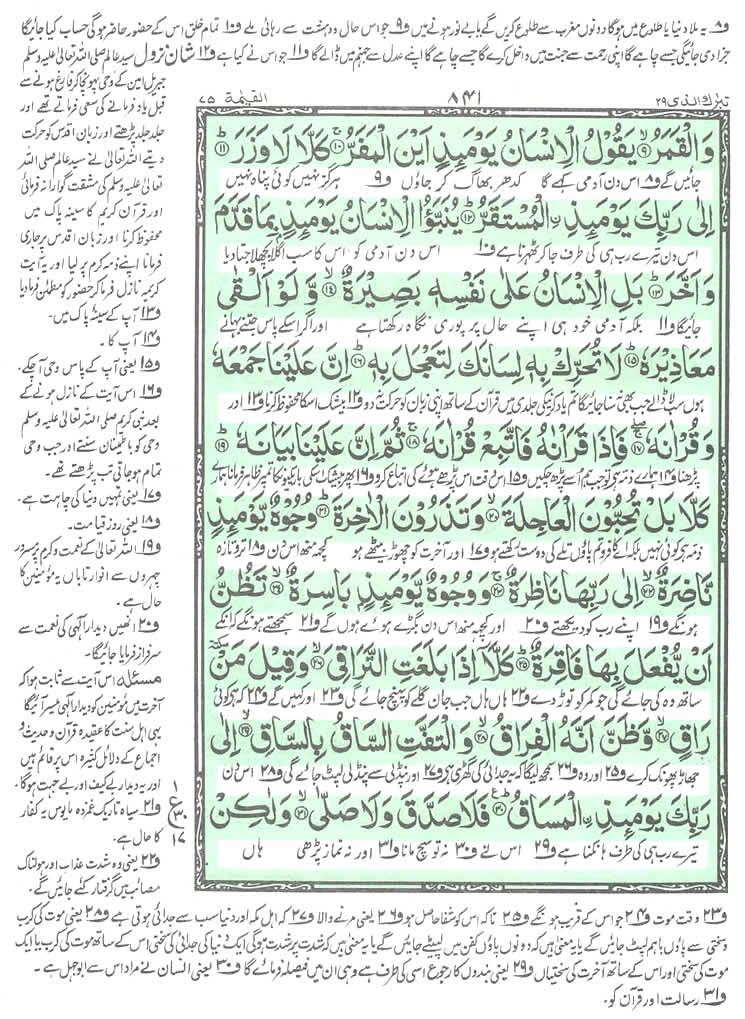 و۸ یہ ملا دنیا یا طلوع میں ہوگا دونوں مغرب سے طلوع کریں گے یا بے نور ہونے میں و۹ جو اس حال و دہشت سے رہائی ملے و۱۰ تمام خلق اس کے حضور حاضر ہوگی حساب کیا جائیگا
جزا دی جائیگی جسے چاہے گا اپنی رحمت سے جنت میں داخل کرے گا جسے چاہے گا اپنے عدل سے جہنم میں ڈالے گا و۱۱ جو اس نے کیا ہے و۱۲ شان نزول سید عالم صلی اللہ تعالیٰ علیہ وسلم
تبٰرك الذی ۲۹
۸۴۱
القیٰمة ۷۵
وَالْقَمَرُ ۹ یَقُوْلُ الْاِنْسَانُ یَوْمَىٕذٍ اَیْنَ الْمَفَرُّ ۱۰ كَلَّا لَا وَزَرَ ۱۱
جائیں گے و۸ اس دن آدمی کہے گا کدھر بھاگ کر جاؤں و۹ ہرگز نہیں کوئی پناہ نہیں
اِلٰى رَبِّكَ یَوْمَىٕذِ ﹰالْمُسْتَقَرُّ ۱۲ یُنَبَّؤُا الْاِنْسَانُ یَوْمَىٕذٍۭ بِمَا قَدَّمَ
اس دن تیرے رب ہی کی طرف جا کر ٹھہرنا ہے و۱۰ اس دن آدمی کو اس کا سب اگلا پچھلا جتا دیا
وَ اَخَّرَ ۱۳ بَلِ الْاِنْسَانُ عَلٰى نَفْسِهٖ بَصِیْرَةٌ ۱۴ وَّ لَوْ اَلْقٰى
جائیگا و۱۱ بلکہ آدمی خود ہی اپنے حال پر پوری نگاہ رکھتا ہے اور اگر اسکے پاس جتنے بہانے
مَعَاذِیْرَهٗ ۱۵ لَا تُحَرِّكْ بِهٖ لِسَانَكَ لِتَعْجَلَ بِهٖ ۱۶ اِنَّ عَلَیْنَا جَمْعَهٗ
ہوں سب لا ڈالے جب بھی نہ سنا جائیگا تم یاد کرنیکی جلدی میں قرآن کے ساتھ اپنی زبان کو حرکت نہ دو و۱۲ بیشک اسکا محفوظ کرنا و۱۳ اور
وَ قُرْاٰنَهٗ ۱۷ فَاِذَا قَرَاْنٰهُ فَاتَّبِعْ قُرْاٰنَهٗ ۱۸ ثُمَّ اِنَّ عَلَیْنَا بَیَانَهٗ ۱۹
پڑھنا و۱۴ ہمارے ذمہ ہے تو جب ہم اسے پڑھ چکیں و۱۵ اس وقت اس پڑھے ہوئے کی اتباع کرو و۱۶ پھر بیشک اسکی باریکیوں کا تم پر ظاہر فرمانا ہمارے
كَلَّا بَلْ تُحِبُّوْنَ الْعَاجِلَةَ ۲۰ وَ تَذَرُوْنَ الْاٰخِرَةَ ۲۱ وُجُوْهٌ یَّوْمَىٕذٍ
ذمہ ہے کوئی نہیں بلکہ اے کافرو تم پاؤں تلے کی دوست رکھتے ہو و۱۷ اور آخرت کو چھوڑ بیٹھے ہو کچھ منھ اس دن و۱۸ تر و تازہ
نَّاضِرَةٌ ۲۲ اِلٰى رَبِّهَا نَاظِرَةٌ ۲۳ وَ وُجُوْهٌ یَّوْمَىٕذٍۭ بَاسِرَةٌ ۲۴ تَظُنُّ
ہونگے و۱۹ اپنے رب کو دیکھتے و۲۰ اور کچھ منھ اس دن بگڑے ہوئے ہوں گے و۲۱ سمجھتے ہونگے کہ انکے
اَنْ یُّفْعَلَ بِهَا فَاقِرَةٌ ۲۵ كَلَّاۤ اِذَا بَلَغَتِ التَّرَاقِیَ ۲۶ وَ قِیْلَ مَنْ
ساتھ وہ کی جائے گی جو کمر کو توڑ دے و۲۲ ہاں ہاں جب جان گلے کو پہنچ جائے گی و۲۳ اور کہیں گے و۲۴ کہ ہے کوئی
رَاقٍ ۲۷ وَّ ظَنَّ اَنَّهُ الْفِرَاقُ ۲۸ وَ الْتَفَّتِ السَّاقُ بِالسَّاقِ ۲۹ اِلٰى
جھاڑ پھونک کرے و۲۵ اور وہ و۲۶ سمجھ لیگا کہ یہ جدائی کی گھڑی ہے و۲۷ اور پنڈلی سے پنڈلی لپٹ جائے گی و۲۸ اس دن
رَبِّكَ یَوْمَىٕذِ ﹰالْمَسَاقُ ۳۰ فَلَا صَدَّقَ وَ لَا صَلّٰى ۳۱ وَ لٰكِنْ
تیرے رب ہی کی طرف ہانکنا ہے و۲۹ اس نے و۳۰ نہ تو سچ مانا و۳۱ اور نہ نماز پڑھی ہاں
جبریل امین کے وحی پہونچا کر فارغ ہونے سے
قبل یاد فرمانے کی سعی فرماتے تھے اور
جلد جلد پڑھتے اور زبان اقدس کو حرکت
دیتے اللہ تعالیٰ نے سید عالم صلی اللہ
تعالیٰ علیہ وسلم کی مشقت گوارا نہ فرمائی
اور قرآن کریم کا سینہ پاک میں
محفوظ کرنا اور زبان اقدس پر جاری
فرمانا اپنے ذمہ کرم پر لیا اور یہ آیت
کریمہ نازل فرما کر حضور کو مطمئن فرما دیا
و۱۳ آپ کے سینۂ پاک میں۔
و۱۴ آپ کا۔
و۱۵ یعنی آپ کے پاس وحی آ چکے۔
و۱۶ اس آیت کے نازل ہونے کے
بعد نبی کریم صلی اللہ تعالیٰ علیہ وسلم
وحی کو باطمینان سنتے اور جب وحی
تمام ہو جاتی تب پڑھتے تھے۔
و۱۷ یعنی تمہیں دنیا کی چاہت ہے۔
و۱۸ یعنی روز قیامت۔
و۱۹ اللہ تعالیٰ کے نعمت و کرم پر مسرور
چہروں سے انوار تاباں یہ مؤمنین کا
حال ہے۔
و۲۰ انھیں دیدار الٰہی کی نعمت سے
سرفراز فرمایا جائیگا۔
مسئلہ اس آیت سے ثابت ہوا کہ
آخرت میں مؤمنین کو دیدار الٰہی میسر آئیگا
یہی اہل سنت کا عقیدہ قرآن و حدیث و
اجماع کے دلائل کثیرہ اس پر قائم ہیں
اور یہ دیدار بے کیف اور بے جہت ہوگا۔
و۲۱ سیاہ تاریک غمزدہ مایوس یہ کفار
کا حال ہے۔
و۲۲ یعنی وہ شدت عذاب اور ہولناک
مصائب میں گرفتار کئے جائیں گے۔
۱
ع
۳۰
۱۷
و۲۳ وقت موت و۲۴ جو اس کے قریب ہونگے و۲۵ تاکہ اس کو شفا حاصل ہو و۲۶ یعنی مرنے والا و۲۷ کہ اہل مکہ اور دنیا سب سے جدائی ہوتی ہے و۲۸ یعنی موت کی کرب
و سختی سے پاؤں باہم لپٹ جائیں گے یا یہ معنی ہیں کہ دونوں پاؤں کفن میں لپیٹے جائیں گے یا یہ معنی ہیں کہ شدت پر شدت ہوگی ایک دنیا کی جدائی کی سختی اس کے ساتھ موت کی کرب یا ایک
موت کی سختی اور اس کے ساتھ آخرت کی سختیاں و۲۹ یعنی بندوں کا رجوع اسی کی طرف ہے وہی ان میں فیصلہ فرمائے گا و۳۰ یعنی انسان نے مراد اس سے ابوجہل ہے۔
و۳۱ رسالت اور قرآن کو۔